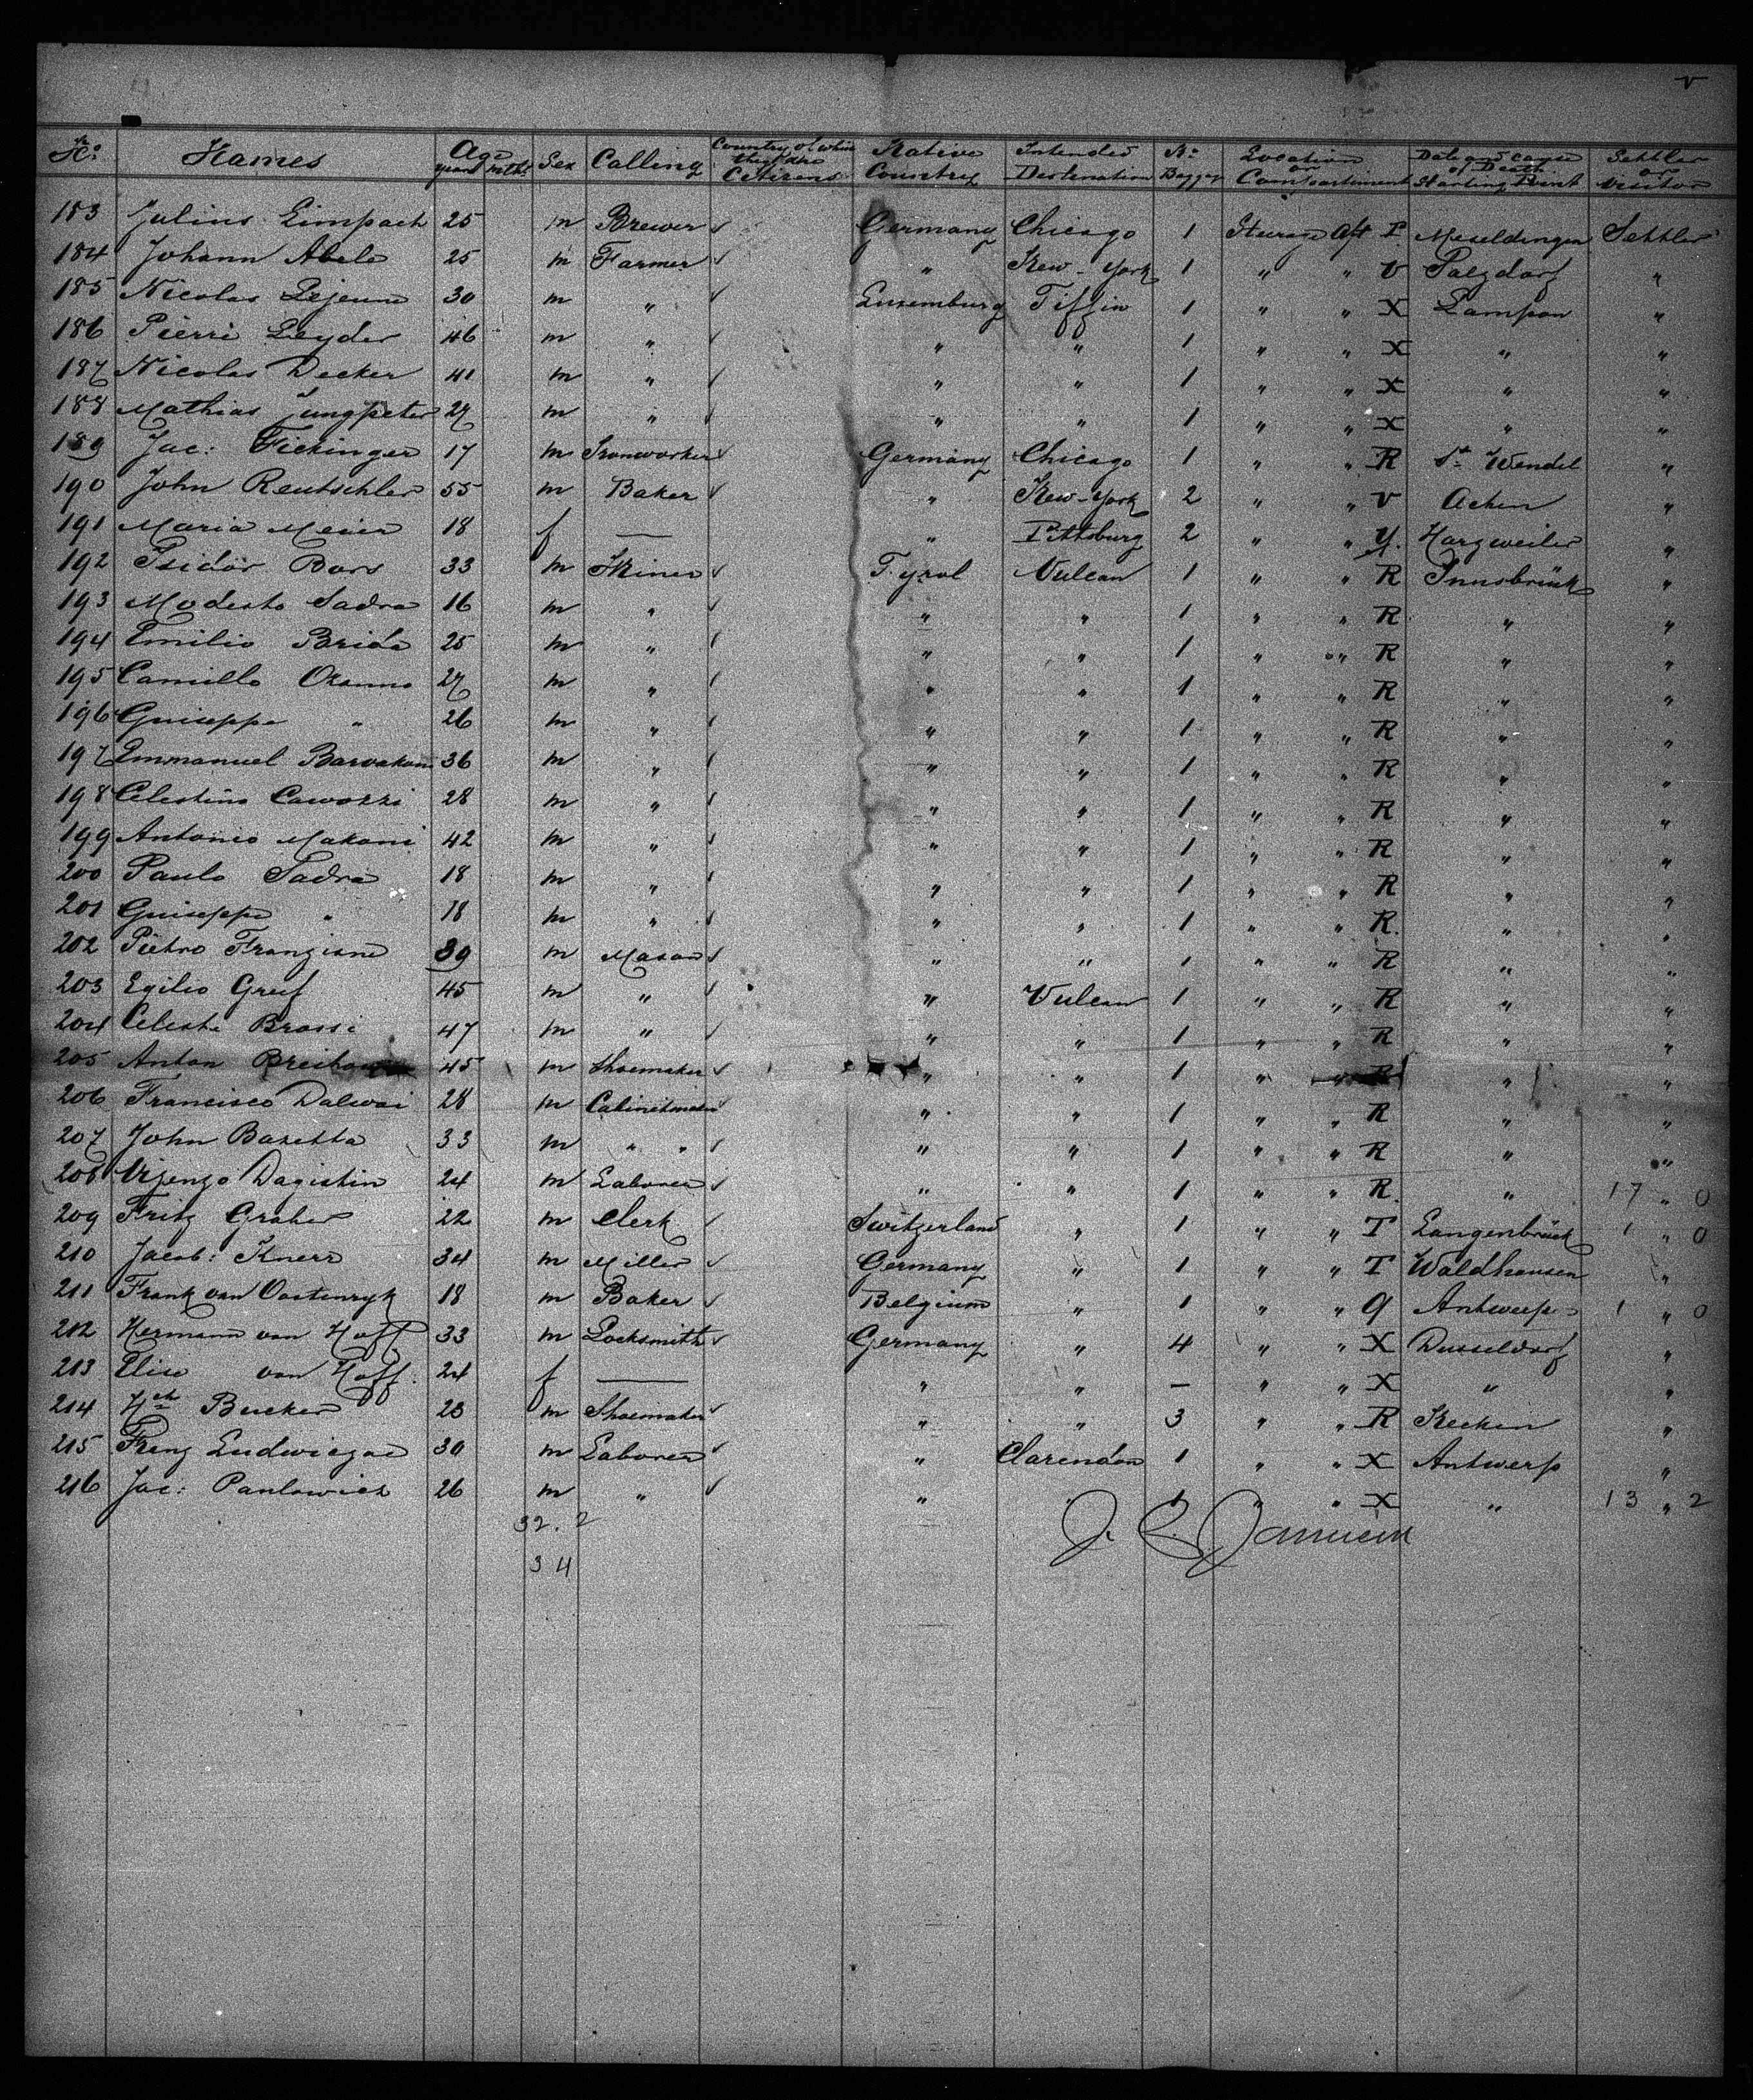 v
No. Names Age years mths Sex Calling Country of which they are Citizens Native Country Intended Destination No. Baggage Location or Compartiment Date and cause of Death Starting Point Settler or Visitor
183 Julius Limpach 25 m Brewer ✓ Germany Chicago 1 Steerage Aft P. Meseldingen Settler
184 Johann Abele 25 m Farmer ✓ " New-York 1 " " V Salzdorf "
185 Nicolas Lejeune 30 m " ✓ Luxemburg Tiffin 1 " " X Lampon "
186 Pierre Leyder 46 m " ✓ " " 1 " " X " "
187 Nicolas Decker 41 m " ✓ " " 1 " " X " "
188 Mathias Jungpeter 27 m " ✓ " " 1 " " X " "
189 Jac: Fickinger 17 m Ironworker ✓ Germany Chicago 1 " " R St Wendel "
190 John Rentschler 55 m Baker ✓ " New-York 2 " " V Achen "
191 Maria Meier 18 f — " Pittsburg 2 " " Y. Hargweiler "
192 Isidor Bors 33 m Miner ✓ Tyrol Vulcan 1 " " R Innsbrück "
193 Modesto Sadra 16 m " ✓ " " 1 " " R " "
194 Emilio Brida 25 m " ✓ " " 1 " " R " "
195 Camillo Oranno 27 m " ✓ " " 1 " " R " "
196 Guiseppe " 26 m " ✓ " " 1 " " R " "
197 Emmanuel 36 m " ✓ " " 1 " " R " "
198 Celestino Cawozzi 28 m " ✓ " " 1 " " R " "
199 Antonio Makani 42 m " ✓ " " 1 " " R " "
200 Paulo Sadra 18 m " ✓ " " 1 " " R " "
201 Guiseppe " 18 m " ✓ " " 1 " " R. " "
202 Pietro Franzisni 39 m Mason ✓ " " 1 " " R " "
203 Egilio Greif 45 m " ✓ " Vulcan 1 " " R " "
204 Celeste Brossi 47 m " ✓ " " 1 " " R " "
205 Anton 45 m Shoemaker ✓ " " 1 " " R " "
206 Francisco Dalwai 28 m Cabinetmaker ✓ " " 1 " " R " "
207 John Bazetta 33 m " " ✓ " " 1 " " R " "
208 Vizenzo Dagistin 24 m Laborer ✓ " " 1 " " R. " 17 " 0
209 Fritz Graber 22 m Clerk ✓ Switzerland " 1 " " T Langenbrück 1 " 0
210 Jacob: Knerr 34 m Miller ✓ Germany " 1 " " T Waldhausen "
211 Frank van Oostenryk 18 m Baker ✓ Belgium " 1 " " Q Antwerp 1 " 0
212 Hermann von Hoff 33 m Locksmith ✓ Germany " 4 " " X Dusseldorf "
213 Elise von Hoff. 24 f — " " — " " X " "
214 Hch Bucker 23 m Shoemaker ✓ " " 3 " " R Keeken "
215 Franz 30 m Laborer ✓ " Clarendon 1 " " X Antwerp "
216 Jac: Panlowich 26 m " ✓ " " 1 " " X " 13 " 2
32. 2
34